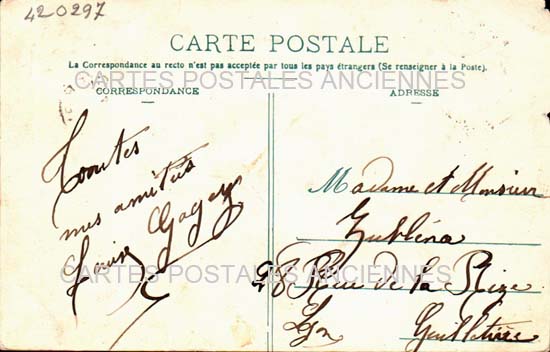 420297
CARTE POSTALE
La Correspondance au recto n'est pas acceptée par tous les pays étrangers (Se renseigner à la Poste).
CARTES POSTALES ANCIENNES
CORRESPONDANCE
ADRESSE
Toutes
mes amitiés
Madame et Monsieur
CARTES POSTALES ANCIENNES
98 Rue de la Rize
Lyon Guillotière